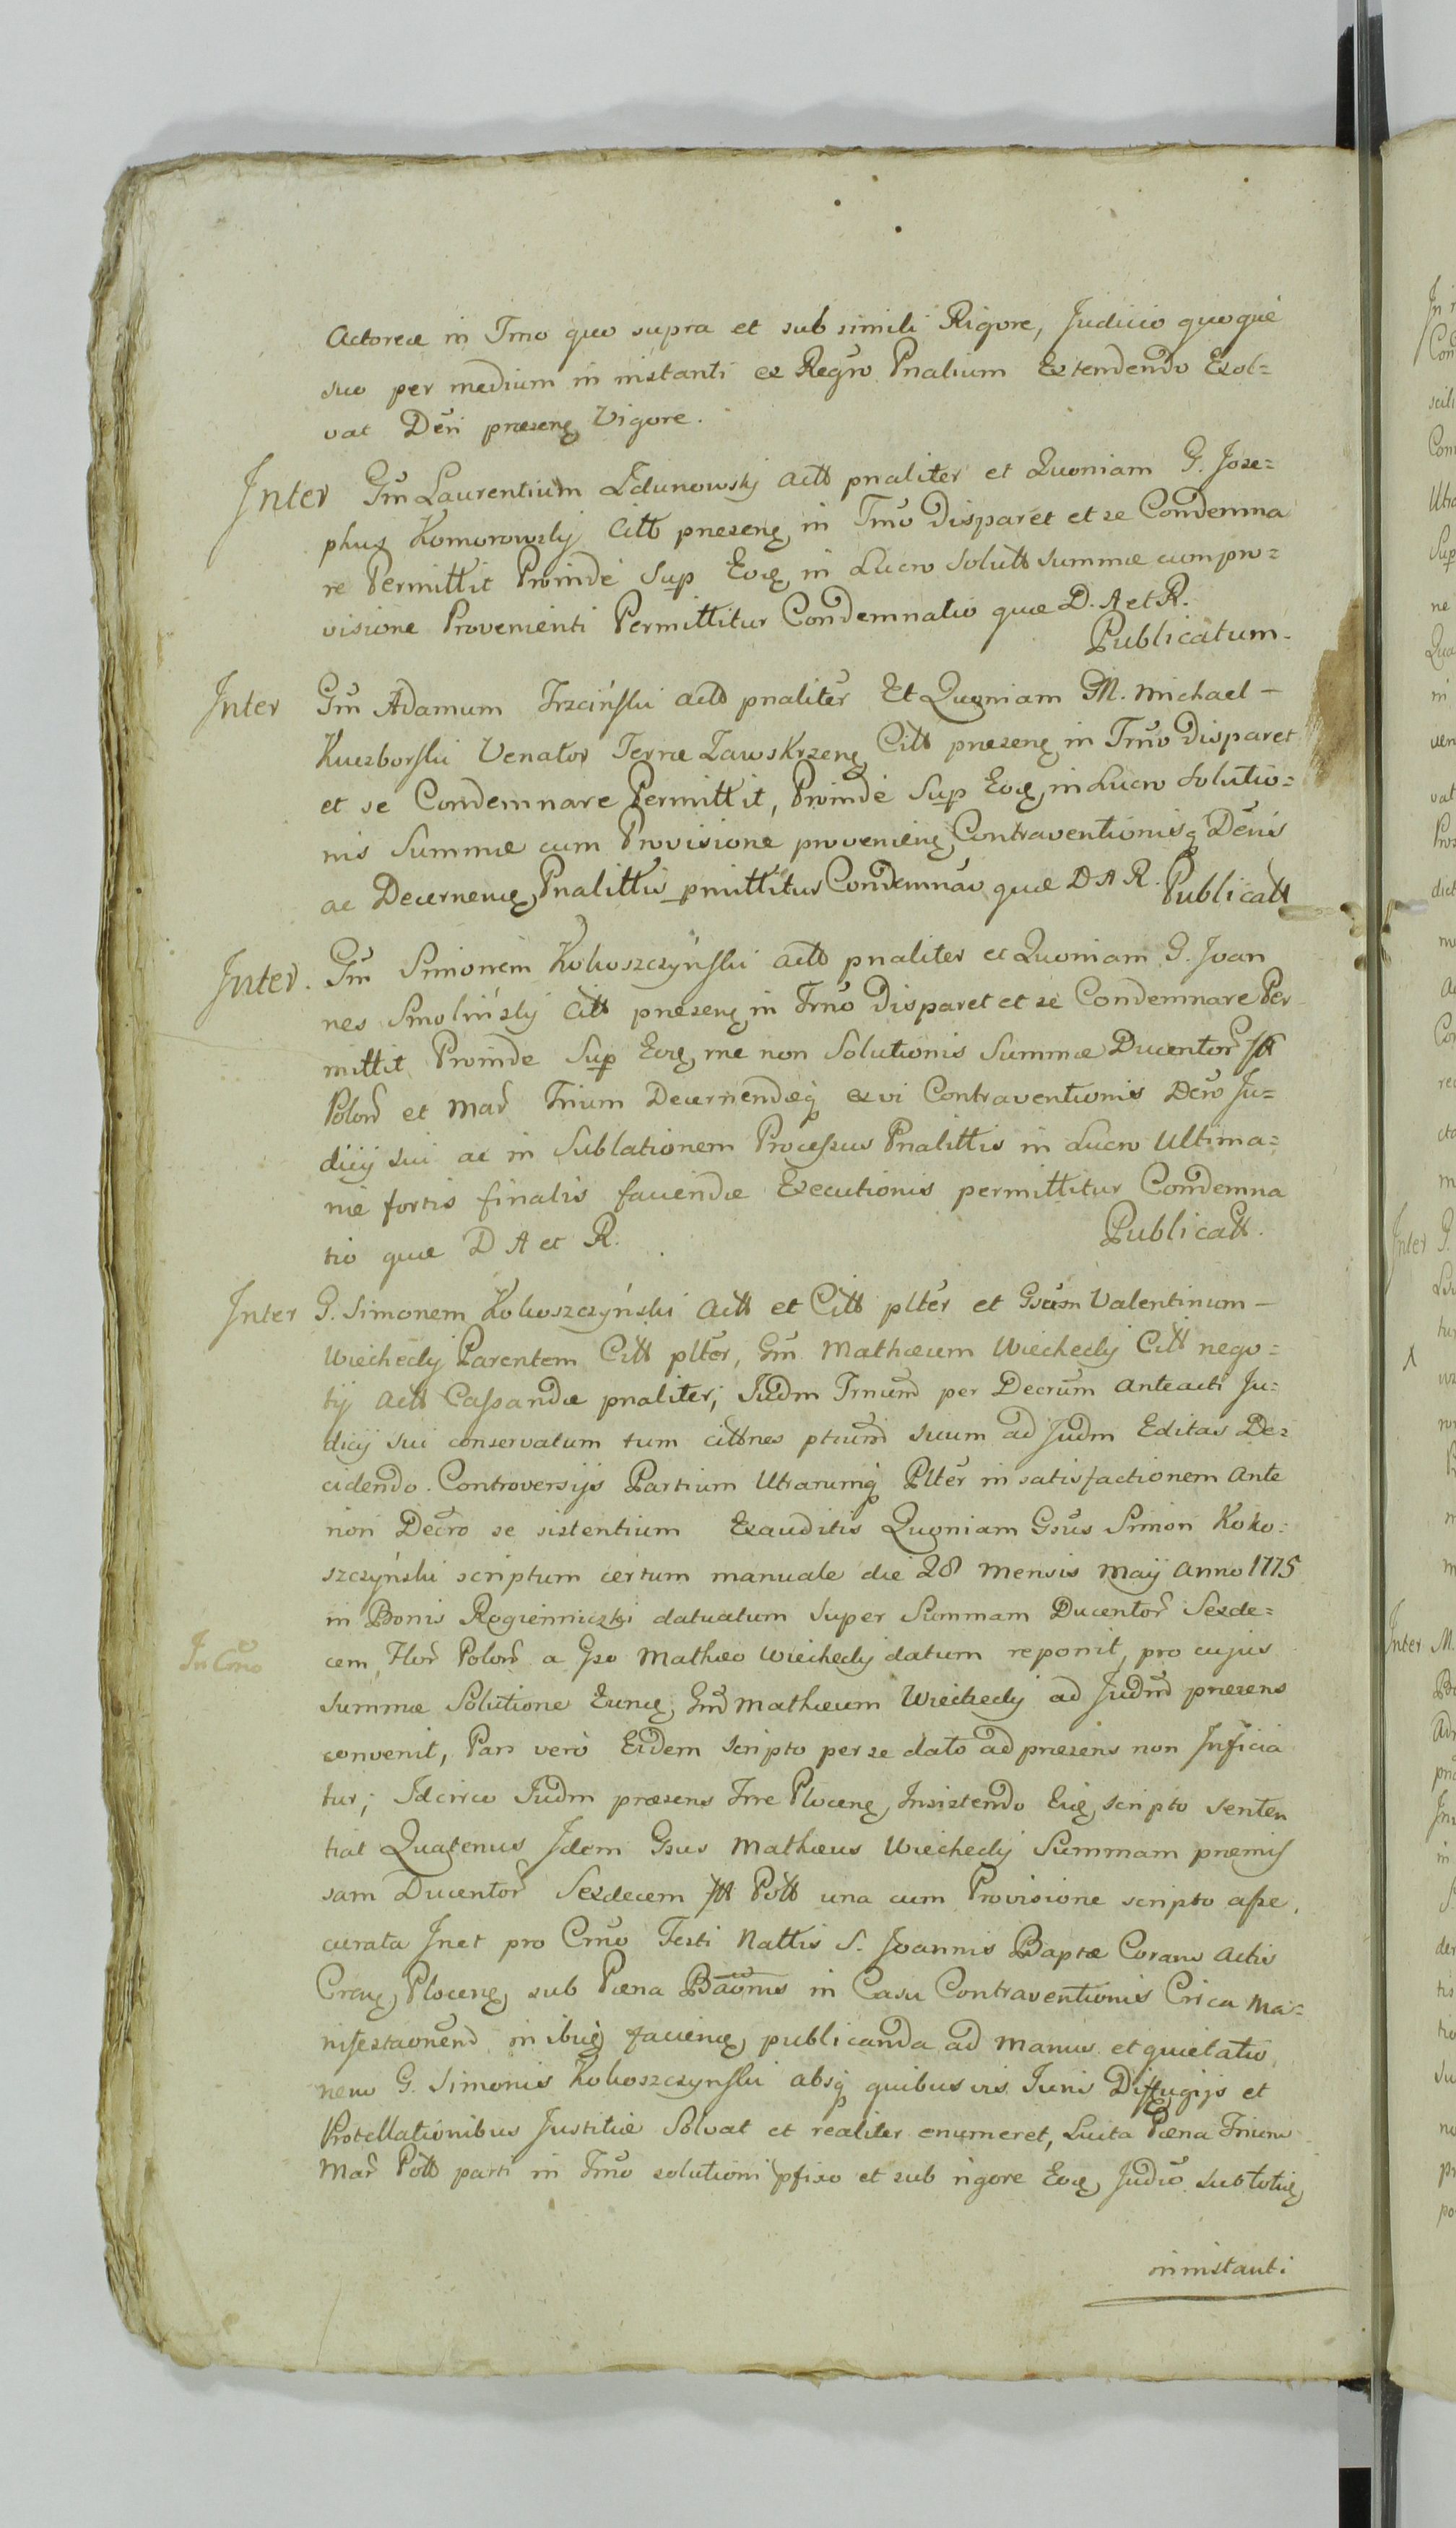 Actoreæ in Tmo quo supra et sub simili Rigore, Judicio quoque
suo per medium in instanti ex Regro Pnalium Extendendo Exol=
vat Deñi præsenę Vigore.
Inter Gm̃ Laurentium Zdunowskj actt pnaliter et Quoniam G. Jose=
phus Komorowskj Citt præsenę in Tmo Disparet et se Condemna
re Permittit Proinde Sup Eoę in Lucro Solutt summæ cum pro=
visione Provenienti Permittitur Condemnatio quæ D. A et R.
Publicatum.
Inter Gm̃ Adamum Trzciński actt pnaliter Et Quoniam GM. Michael —
Kuczborski Venator Terræ Zawskrzenę Citt præsenę in Tmo Disparet
et se Condemnare Permittit, Proinde Sup Eoę in Lucro Solutio=
nis Summæ cum Provisione provenienę Contraventionisq Deñis
ac Decernenę Pnalittis pmittitur Condemnao quæ D A R. Publicatt
Inter. Gm̃ Simonem Kokoszczyński actt pnaliter et Quoniam G. Joan
nes Smolińskj Citt præsenę in Tmo Disparet et se Condemnare Per
mittit Proinde Sup Eoę me non Solutionis Summæ Ducentor ftt
Polor et Mar Trium Decernendæq ex vi Contraventionis Decro Ju=
dicij sui ac in Sublationem Processus Pnalittis in Lucro Ultima=
niæ fortis finalis faciendæ Executionis permittitur Condemna
tio quæ D A et R. Publicatt.
Inter G. Simonem Kokoszczyński Actt et Citt plter et Gsum Valentinum —
Wiechecky Parentem Citt plter, Gm̃ Mathæum Wiechecky Citt nego=
tij Actt Cassandæ pnaliter; Judm Trnum per Decrum anteacti Ju=
dicij sui conservatum tum cittnes ptium suum ad Judm Editas De=
cidendo. Controversijs Partium Utrarumq Plter in satisfactionem Ante
riori Decro se sistentium Exauditis Quoniam Gsus Simon Koko=
szczyński scriptum certum manuale die 28 Mensis Maij Anno 1775
in Bonis Rogienniczki datuatum super Summam Ducentor Sexde=
cem Flor Polor a Gso Mathæo Wiechecky datum reponit, pro cujus
In Cmo
summæ Solutione Eunę Gm̃ Mathæum Wiechecky ad Judm præsens
convenit, Pars vero Eidem scripto per se dato ad præsens non Inficia
tur; Idcirco Judm præsens Trre Plocenę Insistendo Eię scripto senten
tiat Quatenus Idem Gsus Mathæus Wiechecky Summam præmis
sam Ducentor Sexdecem ftt Pott una cum Provisione scripto asse
curata Inet pro Cmo Festi Nattis S. Joannis Baptæ Coram Actis
Crenę Plocenę sub Pæna Baonis in Casu Contraventionis Circa Ma=
nifestaonend in ibię facienę publicanda ad manus et quietatio
nem G. Simonis Kokoszczynski absq quibusvis Juris Diffugijs et
Protellationibus Justitiæ Solvat et realiter enumeret, Luita Pæna Trium
Mar Pott parti in Tmo solutioni pfixo et sub rigore Eoę Judio subtotię
in instanti